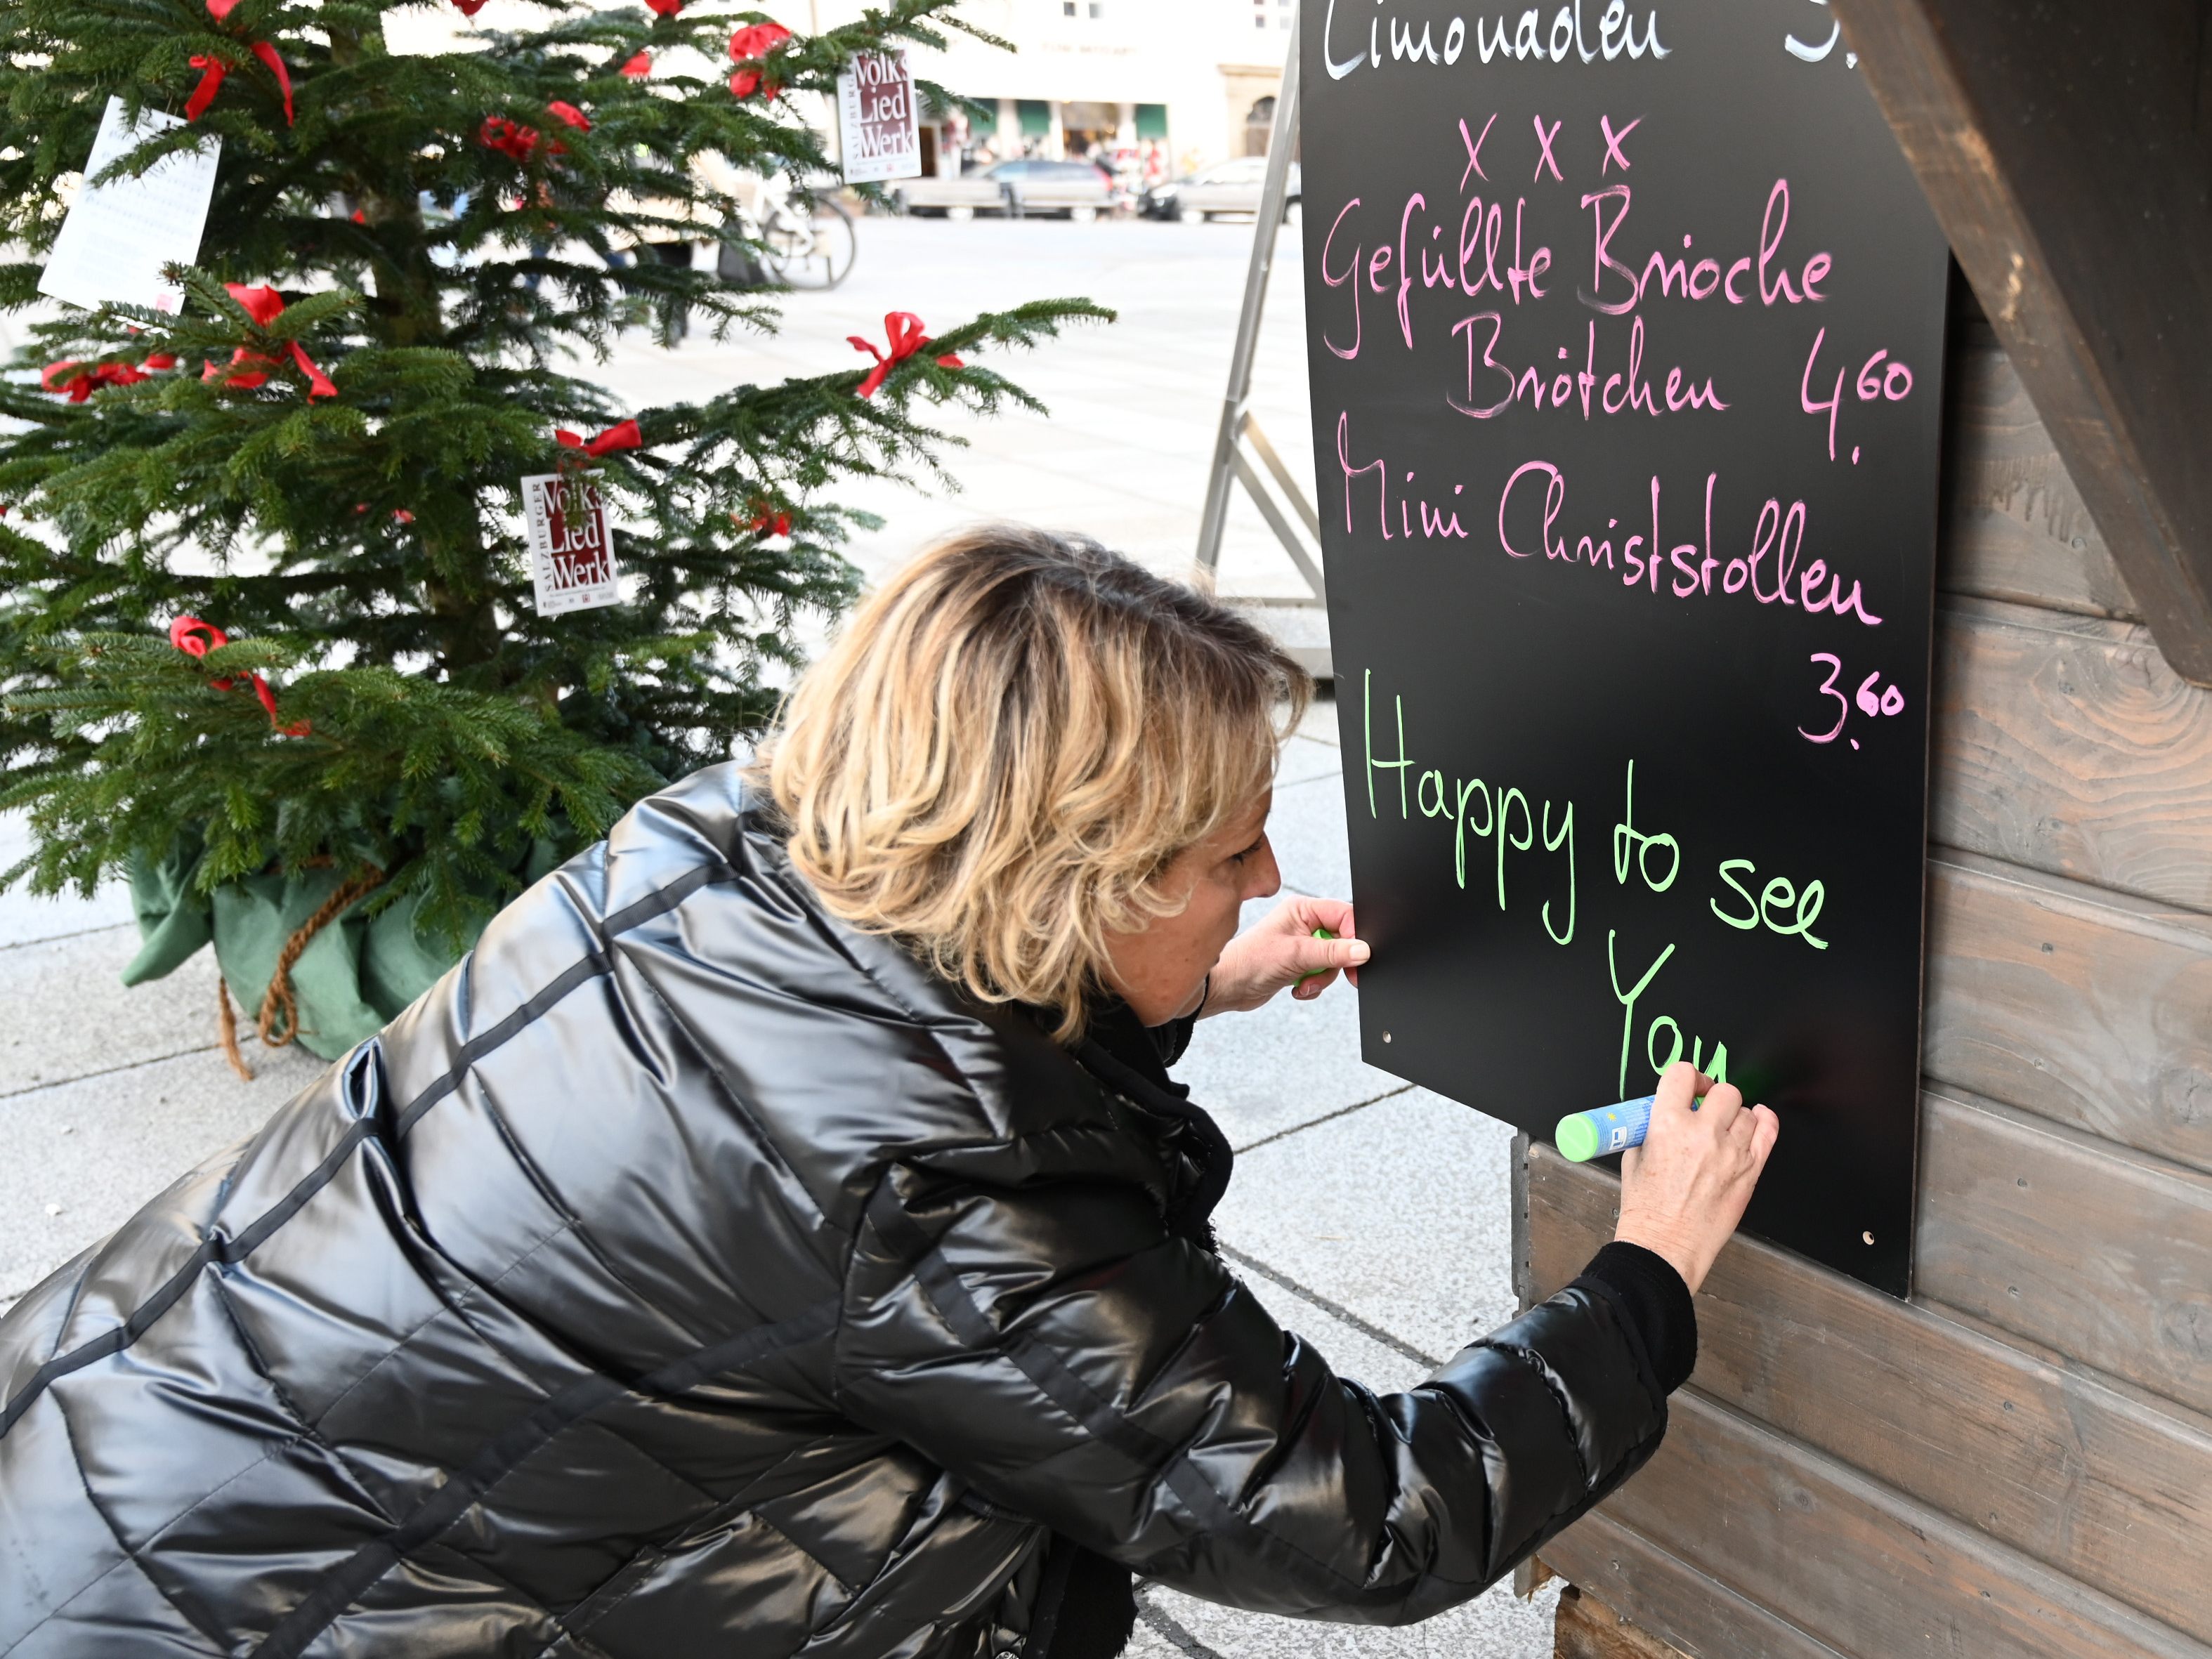 Limonaden 3.
x x x
Gefüllte Brioche
Brötchen 4.60
Mini Christstollen
3.60
Happy to see
You
SALZBURGER
Volks
Lied
Werk
SALZBURGER
Volks
Lied
Werk